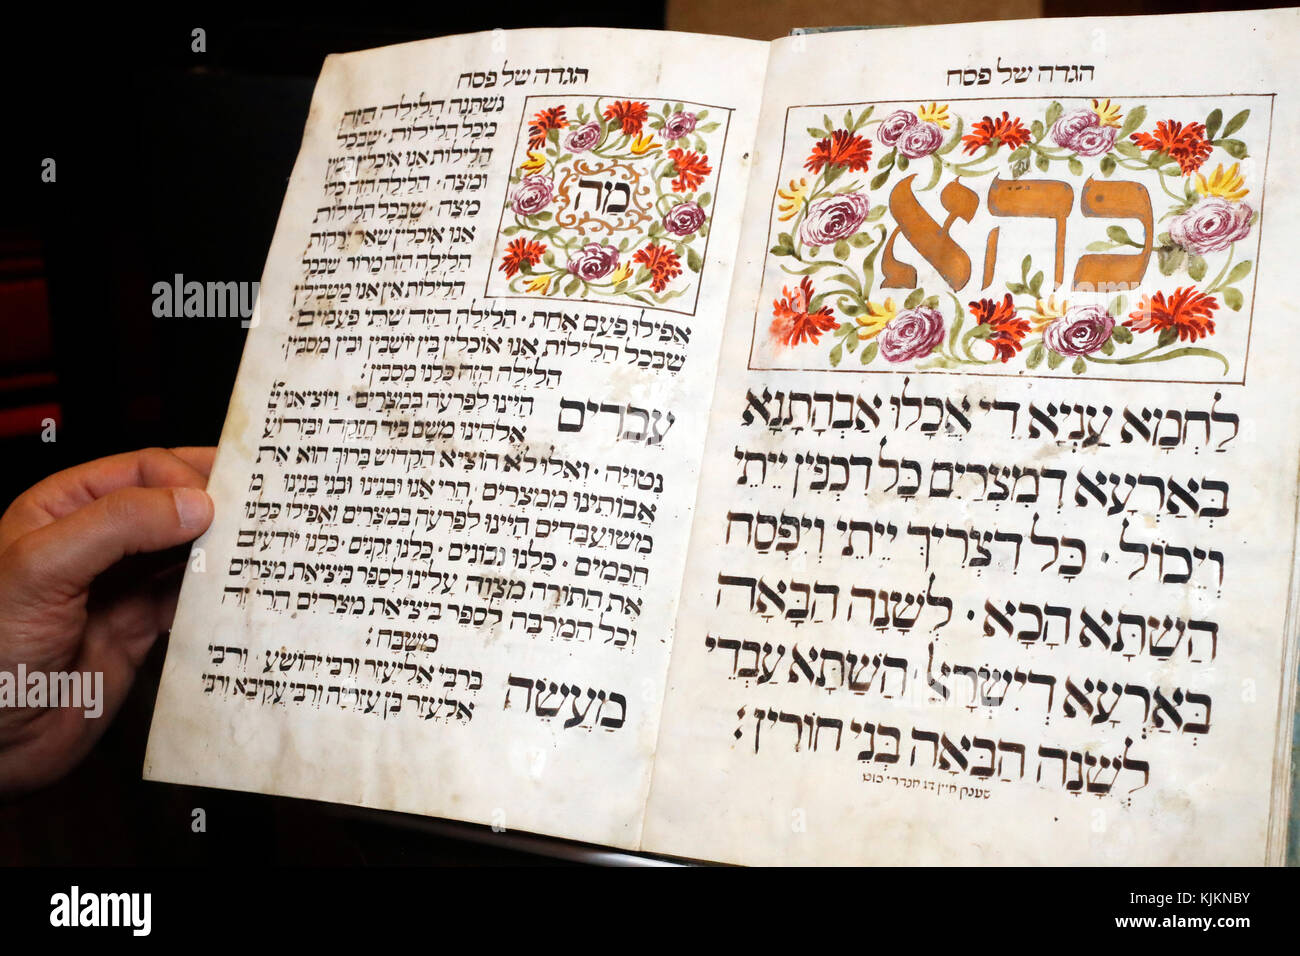 הגדה של פסח
כהא
לחמא עניא די אכלו אבהתנא
בארעא דמצרים כל דכפין ייתי
ויכול · כל דצריך ייתי ויפסח
השתא הכא · לשנה הבאה
בארעא דישראל · השתא עבדי
לשנה הבאה בני חורין:
הגדה של פסח
מה
נשתנה הלילה הזה
מכל הלילות · שבכל
הלילות אנו אוכלין חמץ
ומצה · הלילה הזה כלו
מצה · שבכל הלילות
אנו אוכלין שאר ירקות
הלילה הזה מרור שבכל
הלילות אין אנו מטבילין
אפילו פעם אחת · הלילה הזה שתי פעמים ·
שבכל הלילות אנו אוכלין בין יושבין ובין מסבין ·
הלילה הזה כלנו מסבין:
עבדים היינו לפרעה במצרים · ויוציאנו
אלהינו משם ביד חזקה ובזרוע
נטויה · ואלו לא הוציא הקדוש ברוך הוא את
אבותינו ממצרים · הרי אנו ובנינו ובני בנינו מ
משועבדים היינו לפרעה במצרים ואפילו כלנו
חכמים · כלנו נבונים · כלנו זקנים · כלנו יודעים
את התורה מצוה עלינו לספר ביציאת מצרים
וכל המרבה לספר ביציאת מצרים הרי זה
משבח:
מעשה ברבי אליעזר ורבי יהושע · ורבי
אלעזר בן עזריה ורבי עקיבא ורבי
alamy
Image ID: KJKNBY
www.alamy.com